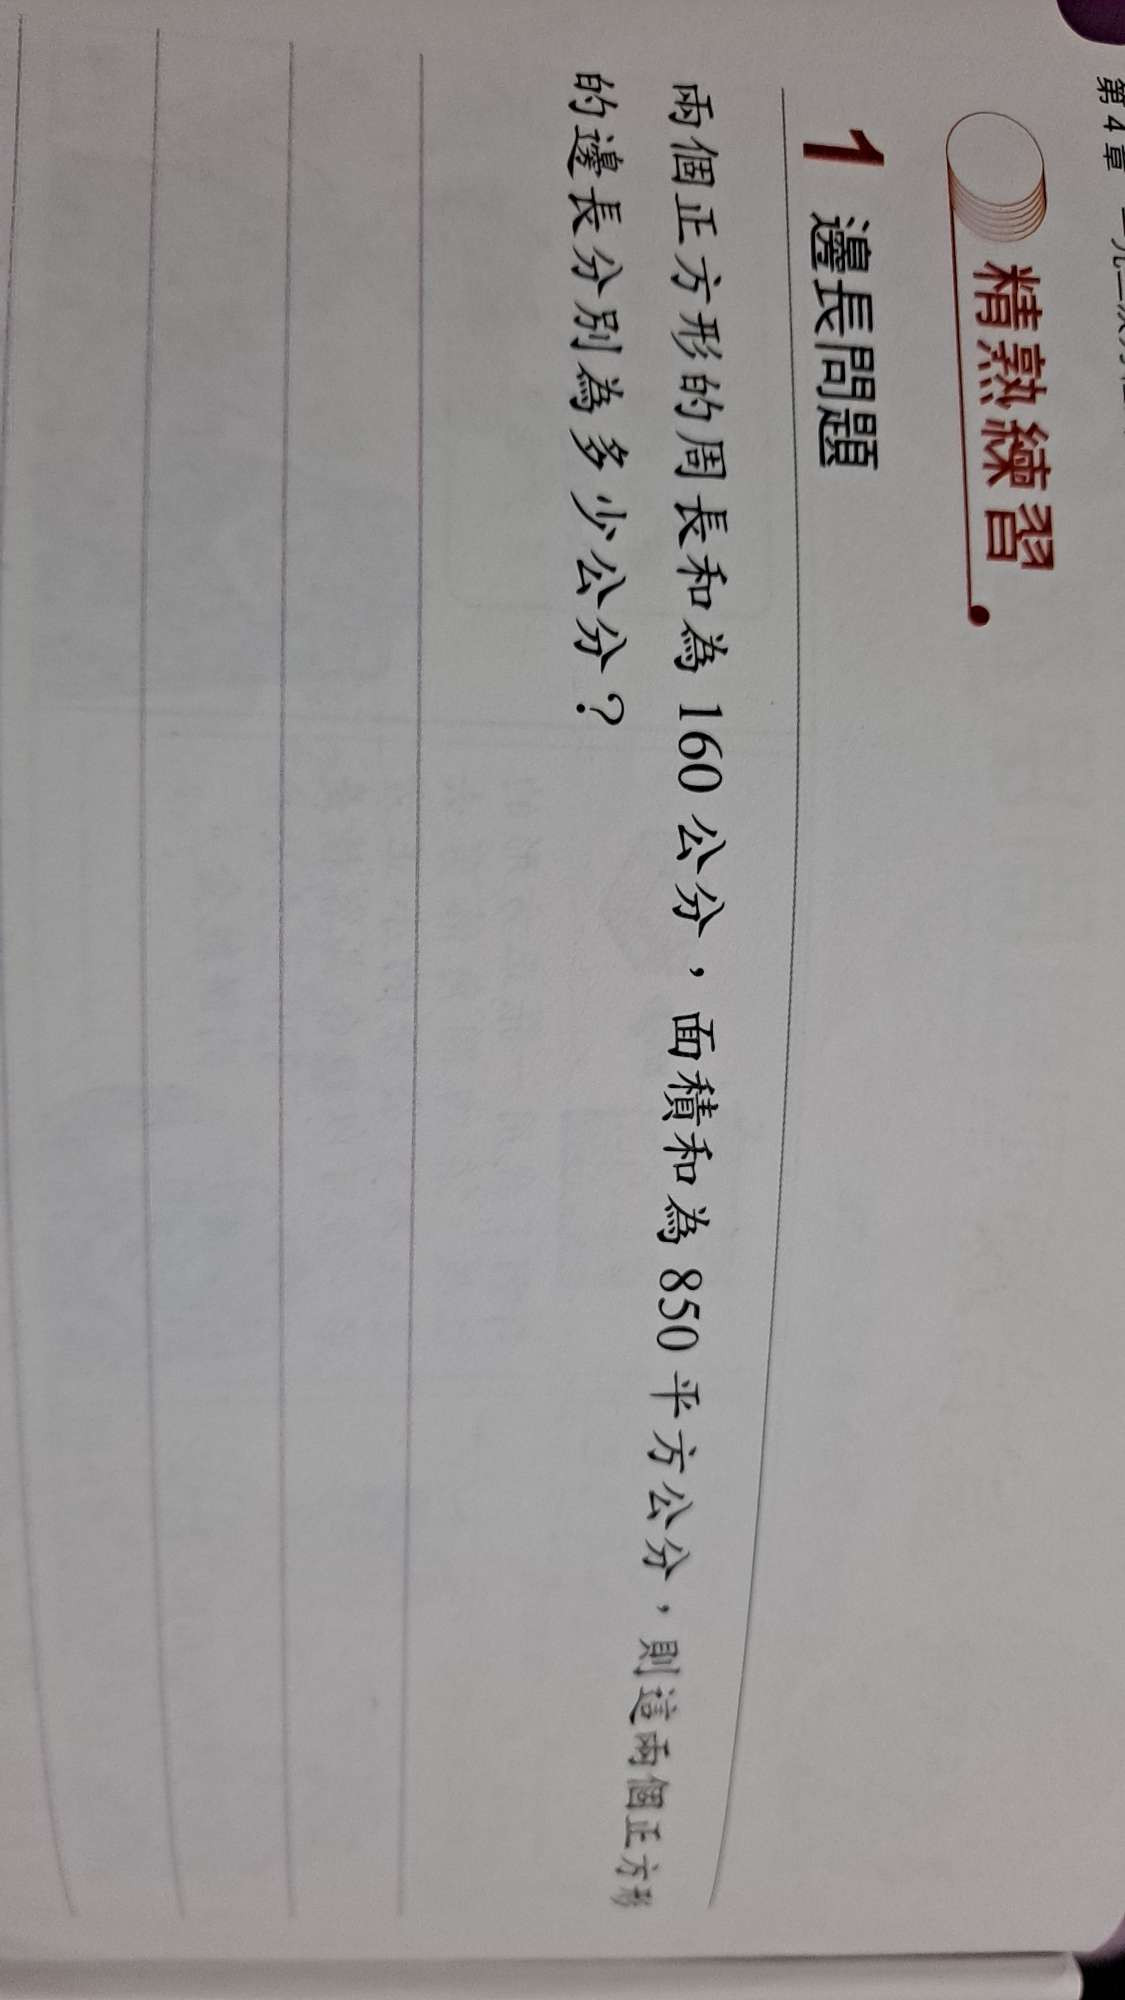 第4章
精熟練習
1 邊長問題
兩個正方形的周長和為 160 公分,面積和為 850 平方公分,則這兩個正方形
的邊長分別為多少公分?